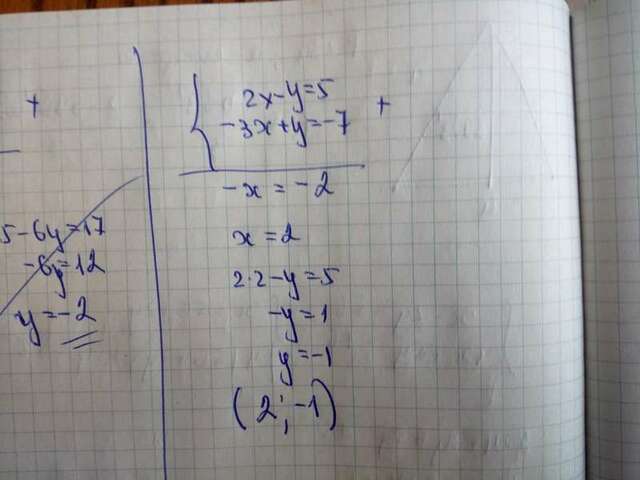 5-6y=17
-6y=12
y=-2
+
2x-y=5
-3x+y=-7
+
-x=-2
x=2
2·2-y=5
-y=1
y=-1
(2;-1)